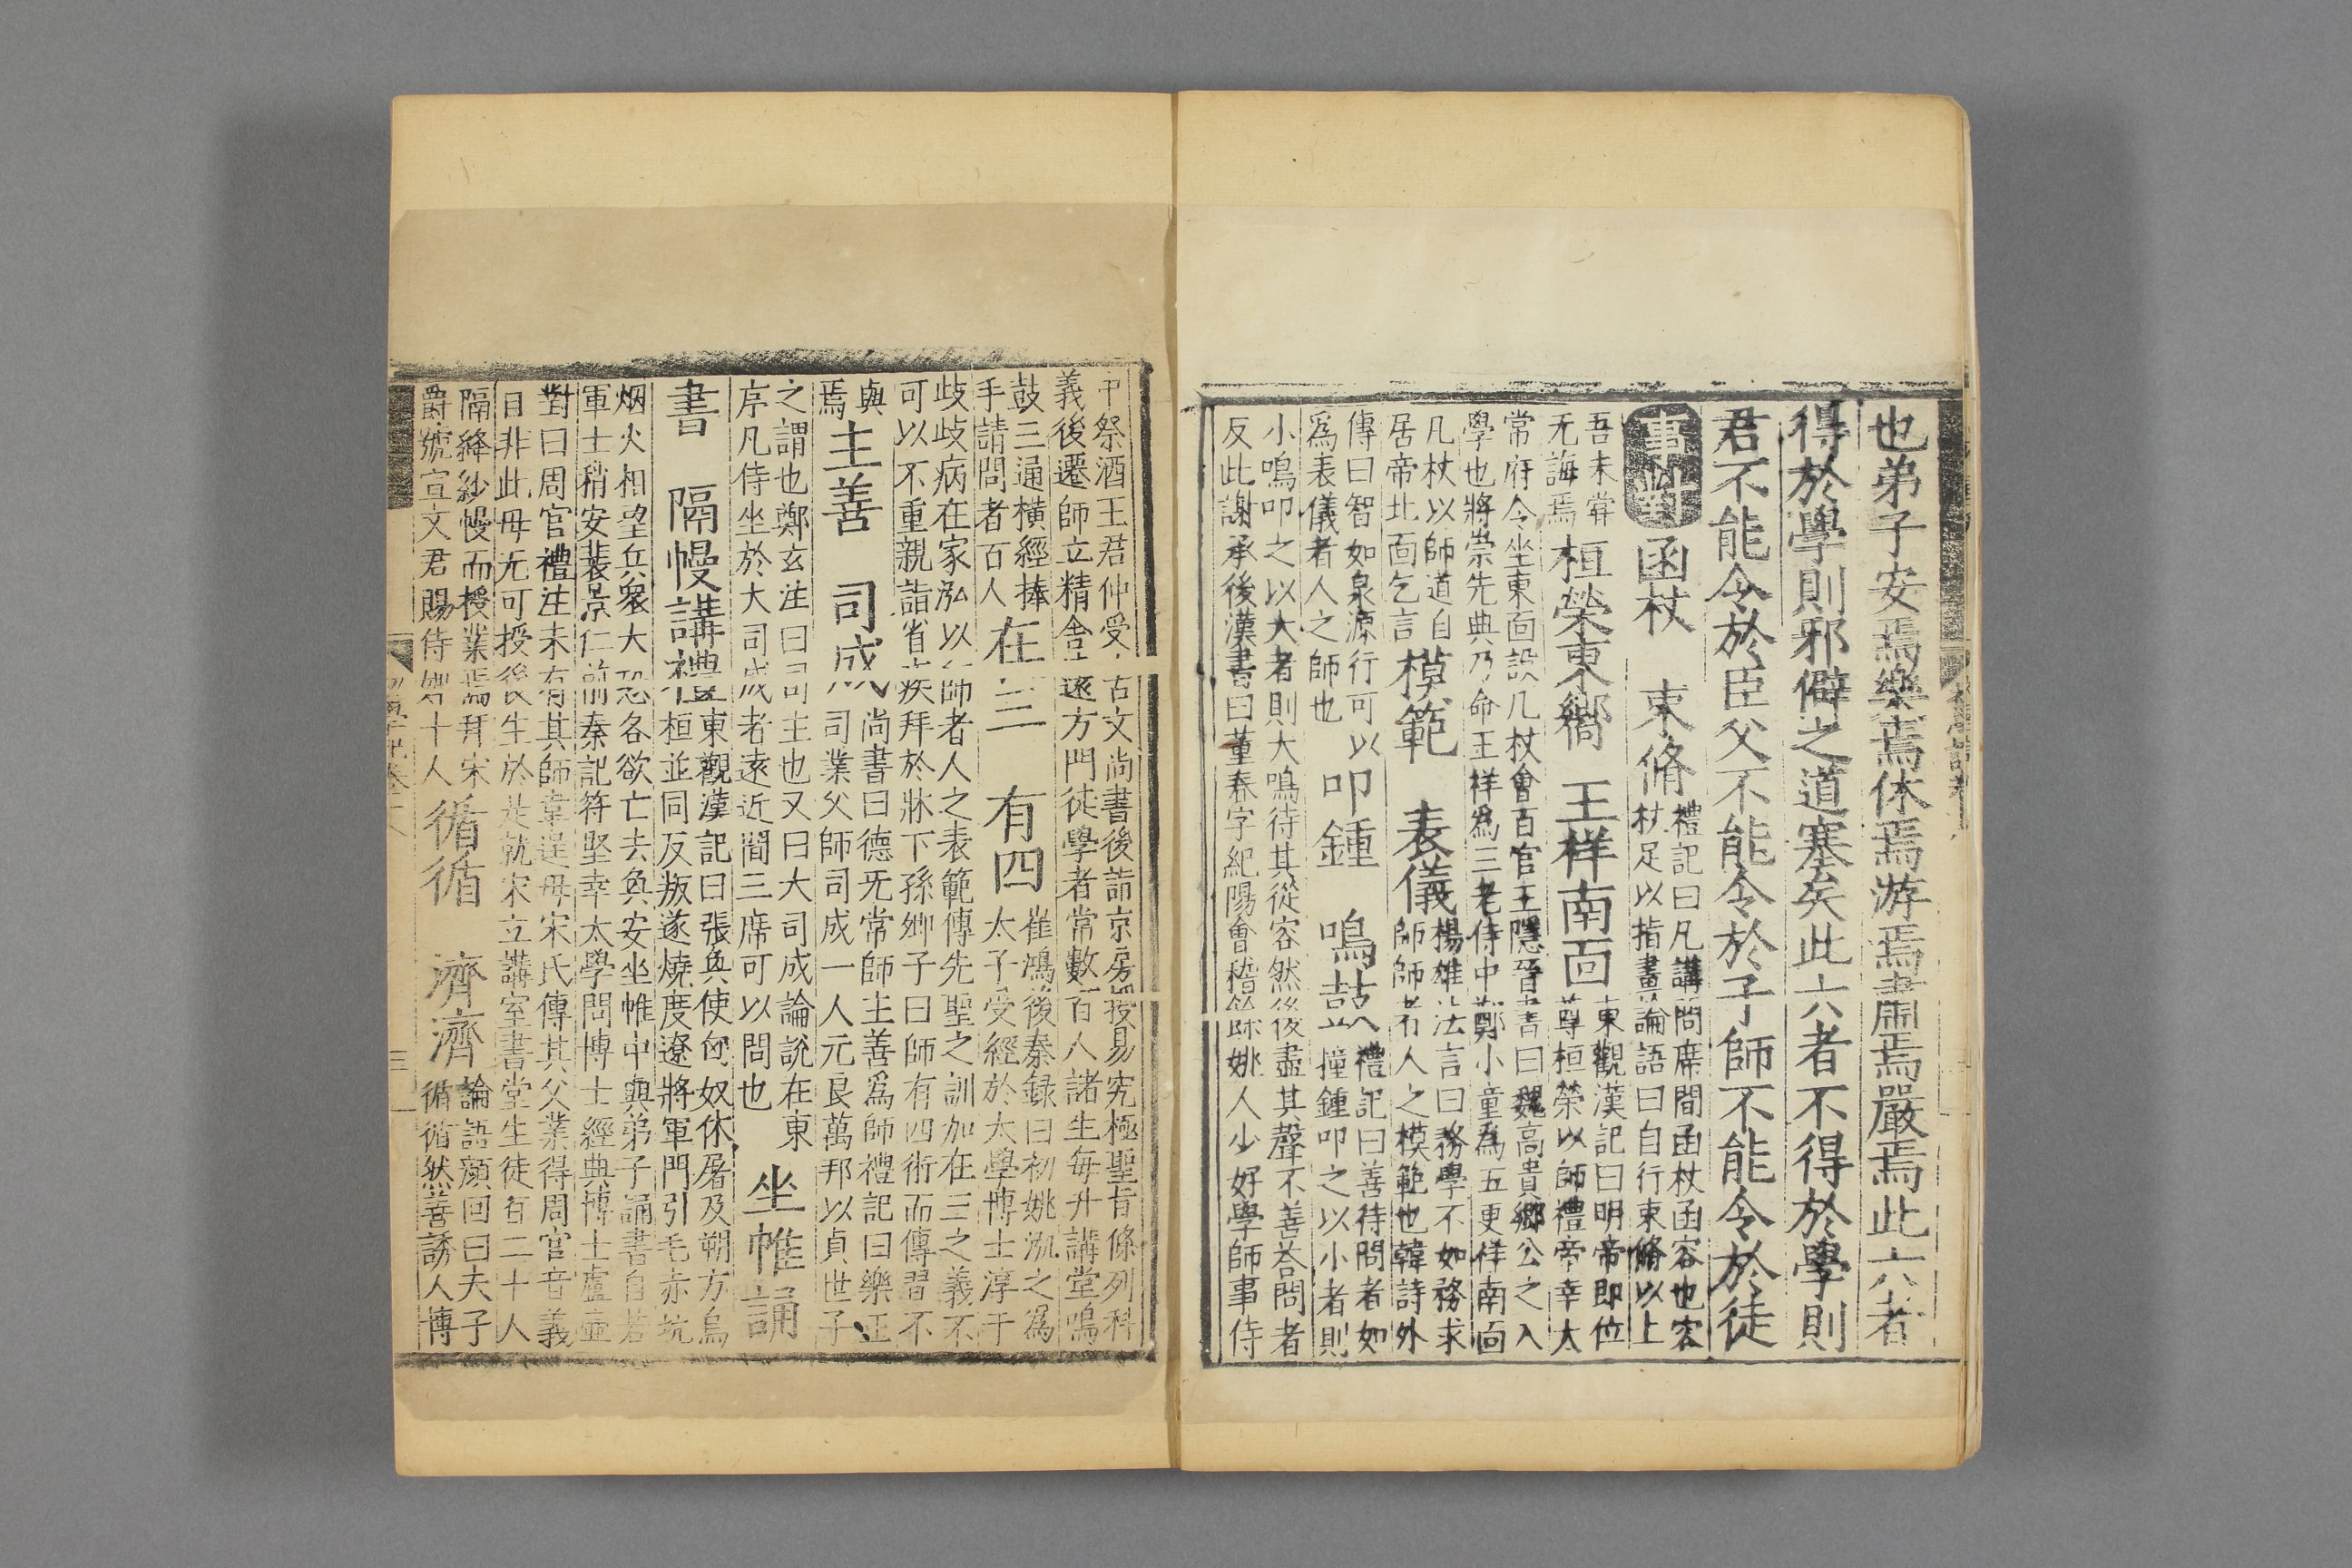 也弟子安焉樂焉休焉游焉肅焉嚴焉此六者
得於學則邪僻之道塞矣此六者不得於學則
君不能令於臣父不能令於子師不能令於徒
事對
函杖 束脩
禮記曰凡講問席間函杖函容也容
杖足以指畫論語曰自行束脩以上
吾未甞
无誨焉
桓榮東嚮 王祥南面
東觀漢記曰明帝即位
尊桓榮以師禮帝幸太
常府令坐東面設几杖會百官王隱晉書曰魏高貴鄉公之入
學也將崇先典乃命王祥為三老侍中鄭小童為五更祥南面
几杖以師道自
居帝北面乞言
模範 表儀
楊雄法言曰務學不如務求
師師者人之模範也韓詩外
傳曰智如泉源行可以
爲表儀者人之師也
叩鍾 鳴鼓
禮記曰善待問者如
撞鍾叩之以小者則
小鳴叩之以大者則大鳴待其從容然後盡其聲不善荅問者
反此謝承後漢書曰董春字紀陽會稽餘姚人少好學師事侍
中祭酒王君仲受古文尚書後詣京房授易究極聖旨條列科
義後還師立精舍遠方門徒學者常數百人諸生每升講堂鳴
鼓三通橫經捧
手請問者百人
在三 有四
崔鴻後秦録曰初姚泓之爲
太子受經於太學博士淳于
歧歧病在家泓以師者人之表範傳先聖之訓加在三之義不
可以不重親詣省疾拜於牀下孫卿子曰師有四術而傳習不
與
焉
主善 司成
尚書曰德旡常師主善爲師禮記曰樂正
司業父師司成一人元良萬邦以貞世子
之謂也鄭玄注曰司主也又曰大司成論說在東
序凡侍坐於大司成者遠近間三席可以問也
坐帷誦
書 隔幔講禮
東觀漢記曰張奐使匈奴休屠及朔方烏
桓並同反叛遂燒度遼將軍門引屯赤坑
烟火相望兵衆大恐各欲亡去奐安坐帷中與弟子誦書自若
軍士稍安裴景仁前秦記符堅幸太學問博士經典博士盧壼
對曰周官禮注未有其師韋逞母宋氏傳其父業得周官音義
自非此母无可授後生於是就宋立講室書堂生徒百二十人
隔絳紗幔而授業焉拜宋
爵號宣文君賜侍婢十人
循循 濟濟
論語顔回曰夫子
循循然善誘人博